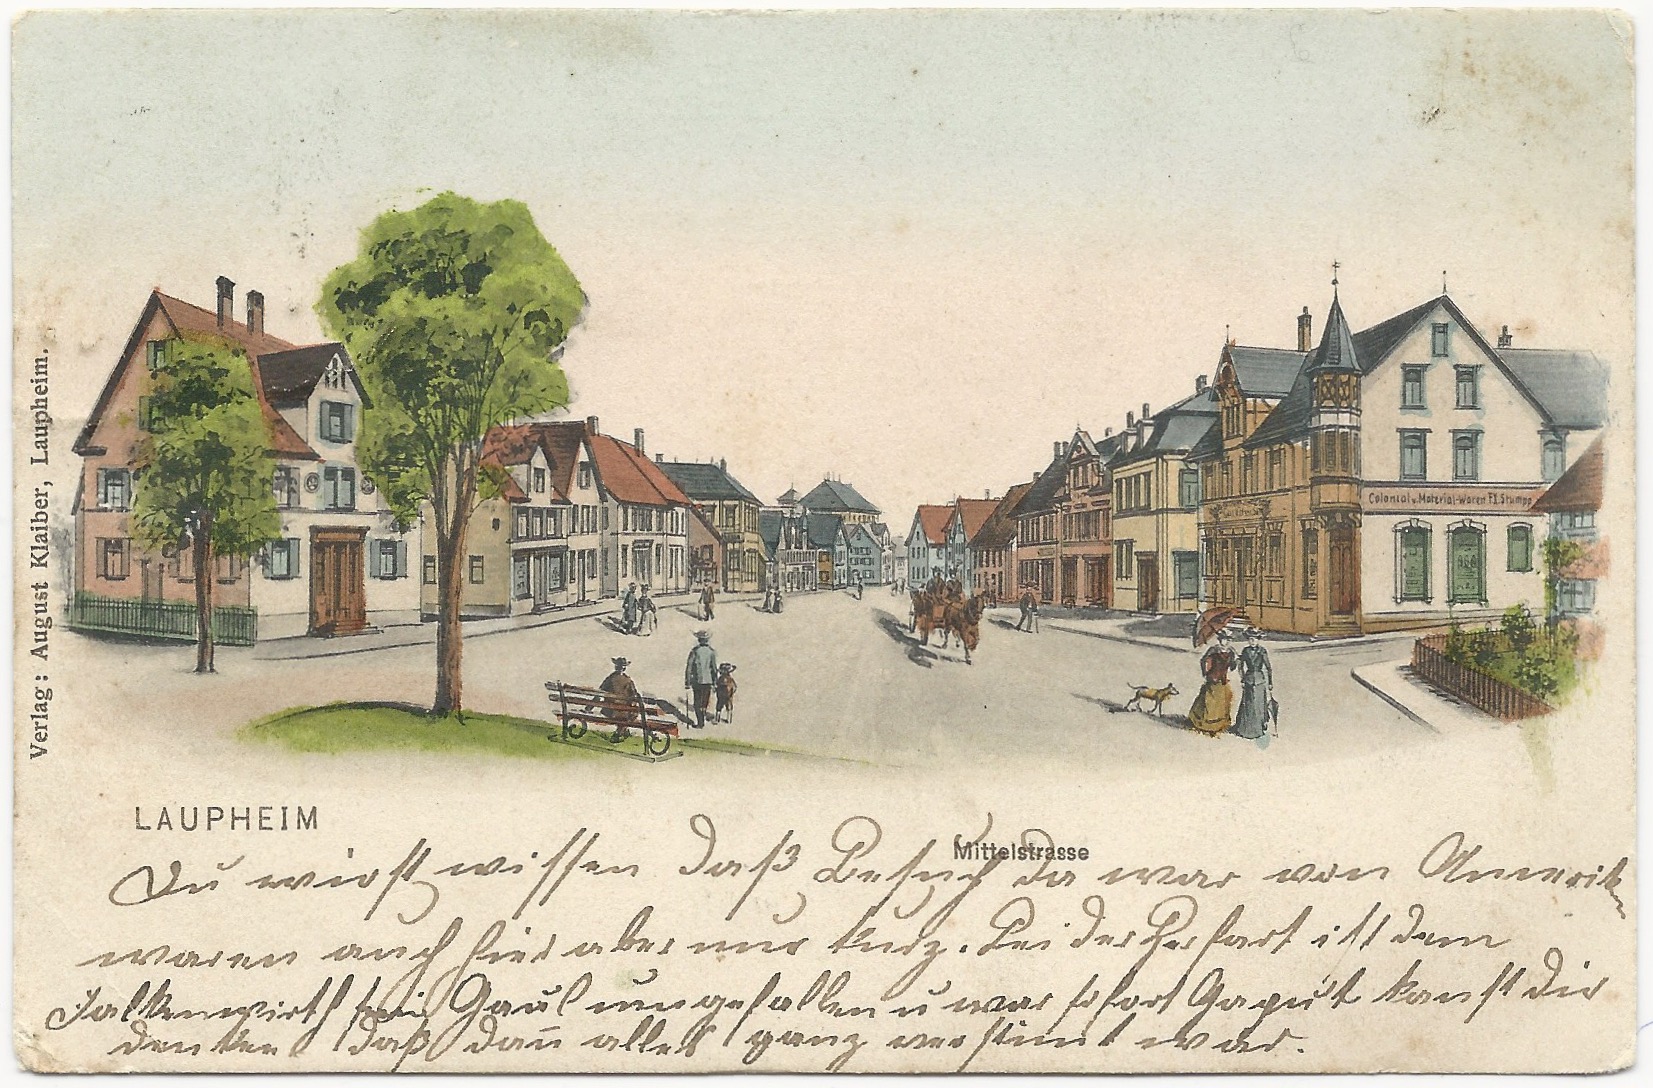 Verlag: August Klaiber, Laupheim.
Colonial u. Material-Waren F.X. Stumpp
LAUPHEIM
Mittelstrasse
Du wirst wissen daß Besuch da war von Amerika
waren auch hier aber nur kurz. Bei der Herfart ist dem
Falkenwirth sein Gaul umgefallen u war sofort Gaput kanst Dir
denken daß dann alles ganz verstimt war.